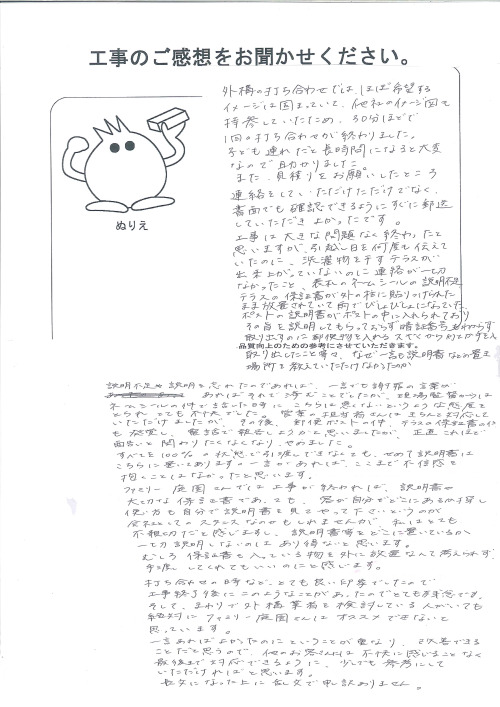 工事のご感想をお聞かせください。
外構の打ち合わせでは、ほぼ希望する
イメージは固まっていて、他社のイメージ図を
持参していたため、30分ほどで
1回の打ち合わせが終わりました。
子ども連れだと長時間になると大変
なので助かりました。
また、見積りをお願いしたところ
連絡をしていただけただけでなく、
書面でも確認できるようにすぐに郵送
していただきよかったです。
ぬりえ
工事は大きな問題なく終わったと
思いますが、引越し日を何度も伝えて
いたのに、洗濯物を干すテラスが
出来上がっていないのに連絡が一切
なかったこと、表札のネームシールの説明不足
テラスの保証書が外の柱に貼りつけられた
まま放置されていて雨でびしょびしょになっていた、
ポストの説明書がポストの中に入れられており
その旨を説明してもらっておらず暗証番号もわからず
取り出すのに郵便物を入れる
品質向上のための参考にさせていただきます。
取り出したこと等々、なぜ一言も説明書などの置き
場所を教えていただけなかったのか
説明不足や説明を忘れたのであれば、一言でも謝罪の言葉が
あればそれで済むことでしたが、現場監督の方は
ネームシールの件で言った時に、こちらは悪くないというような態度を
とられ、とても不快でした。営業の担当者さんはきちんと対応して
いただけましたが、その後、郵便ポストの件、テラスの保証書の件
も発覚し、電話で報告しようかと思いましたが、正直これほど
面倒と関わりたくなくなり、やめました。
すべてを100%の状態で引渡しできなくても、せめて説明書は
こちらに置いてありますの一言があれば、ここまで不信感を
抱くことはなかったと思います。
ファミリー庭園さんでは工事が終われば、説明書や
大切な保証書であっても、客が自分でどこにあるか探し
使い方も自分で説明書を見てやって下さいというのが
会社としてのスタンスなのかもしれませんが、私はとても
不親切だと感じますし、説明書等をどこに置いているか
一切説明しないのはあり得ないと思います。
むしろ保証書も入っている物を外に放置なんて考えられず、
手渡ししてくれてもいいのにと感じます。
打ち合わせの時など、とても良い印象でしたので
工事終了後にこのようなことがあったのでとても残念です。
そして、まわりで外構業者を検討している人がいても
絶対にファミリー庭園さんはオススメできないと
思っています。
一言あればよかったのにということが重なり、改善できる
ことだと思うので、他のお客さんには不快に感じることなく
最後まで対応できるように、少しでも参考にして
いただければと思います。
長文になった上に乱文で申し訳ありません。